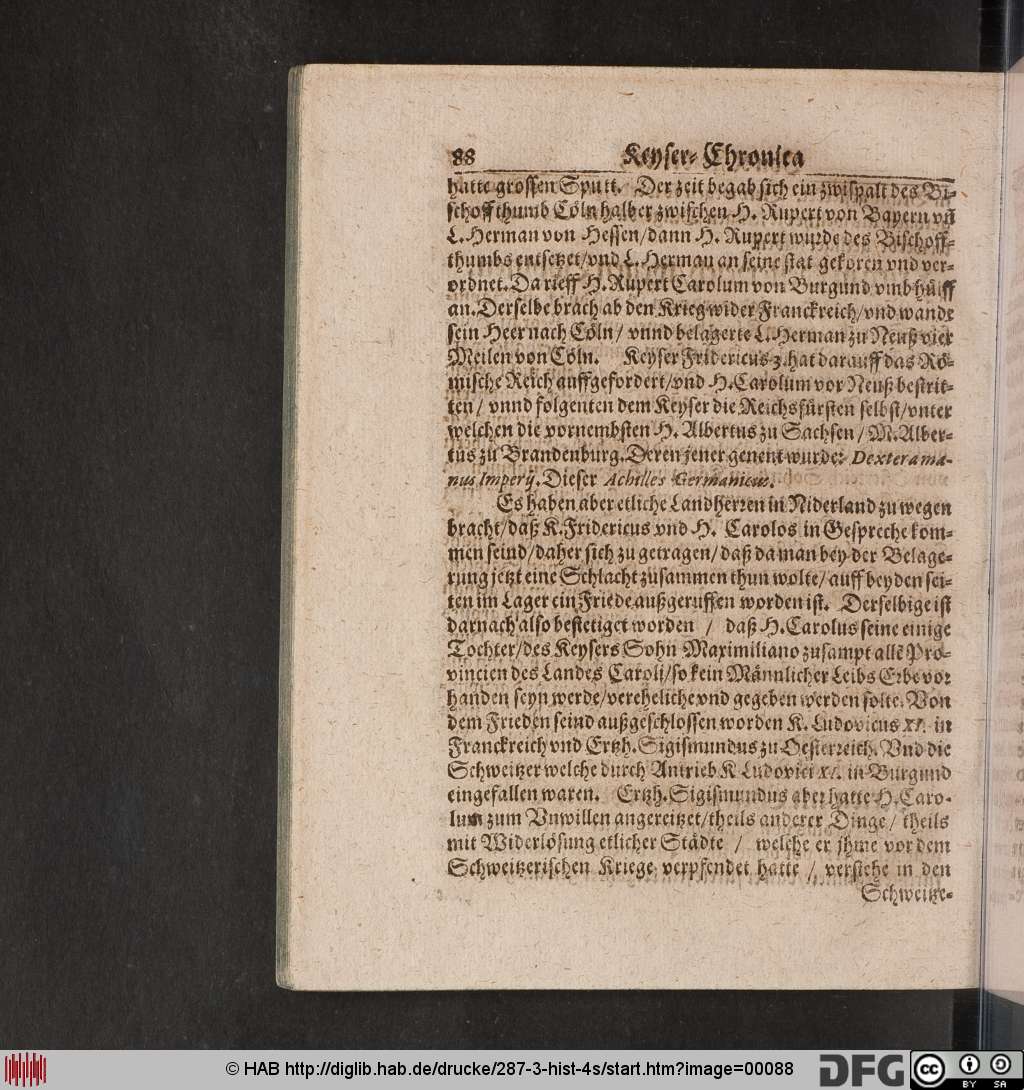 88 Keyser-Chronica
hatte grossen Sputt. Der zeit begab sich ein zwispalt des Bi-
schoff thumb Cöln halber zwischen H. Rupert von Bayern vñ
L. Herman von Hessen/dann H. Rupert wurde des Bischoff-
thumbs entsetzet/vnd L. Herman an seine stat gekoren vnd ver-
ordnet. Da rieff H. Rupert Carolum von Burgund vmb hülff
an. Derselbe brach ab den Krieg wider Franckreich/vnd wande
sein Heer nach Cöln/ vnnd belagerte L. Herman zu Neuß vier
Meilen von Cöln. Keyser Fridericus 3. hat darauff das Rö-
mische Reich auffgefordert/vnd H. Carolum vor Neuß bestrit-
ten/ vnnd folgenten dem Keyser die Reichsfürsten selbst/vnter
welchen die vornembsten H. Albertus zu Sachsen/ M. Alber-
tus zu Brandenburg. Deren jener genent wurde: Dextera ma-
nus Imperij. Dieser Achilles Germanicus.
Es haben aber etliche Landherren in Niderland zu wegen
bracht/daß K. Fridericus vnd H. Carolos in Gespreche kom-
men seind/daher sich zu getragen/daß da man bey der Belage-
rung jetzt eine Schlacht zusammen thun wolte/auff beyden sei-
ten im Lager ein Friede außgeruffen worden ist. Derselbige ist
darnach also bestetiget worden / daß H. Carolus seine einige
Tochter/des Keysers Sohn Maximiliano zusampt allē Pro-
vincien des Landes Caroli/so kein Männlicher Leibs Erbe vor
handen seyn werde/vereheliche vnd gegeben werden solte. Von
dem Frieden seind außgeschlossen worden K. Ludovicus XI. in
Franckreich vnd Ertzh. Sigismundus zu Oesterreich. Vnd die
Schweitzer welche durch Antrieb K Ludovici XI. in Burgund
eingefallen waren. Ertzh. Sigismundus aber hatte H. Caro-
lum zum Vnwillen angereitzet/theils anderer Dinge/ theils
mit Widerlösung etlicher Städte / welche er jhme vor dem
Schweitzerischen Kriege verpfendet hatte / verstehe in den
Schweitze-
© HAB http://diglib.hab.de/drucke/287-3-hist-4s/start.htm?image=00088
DFG
cc
BY SA